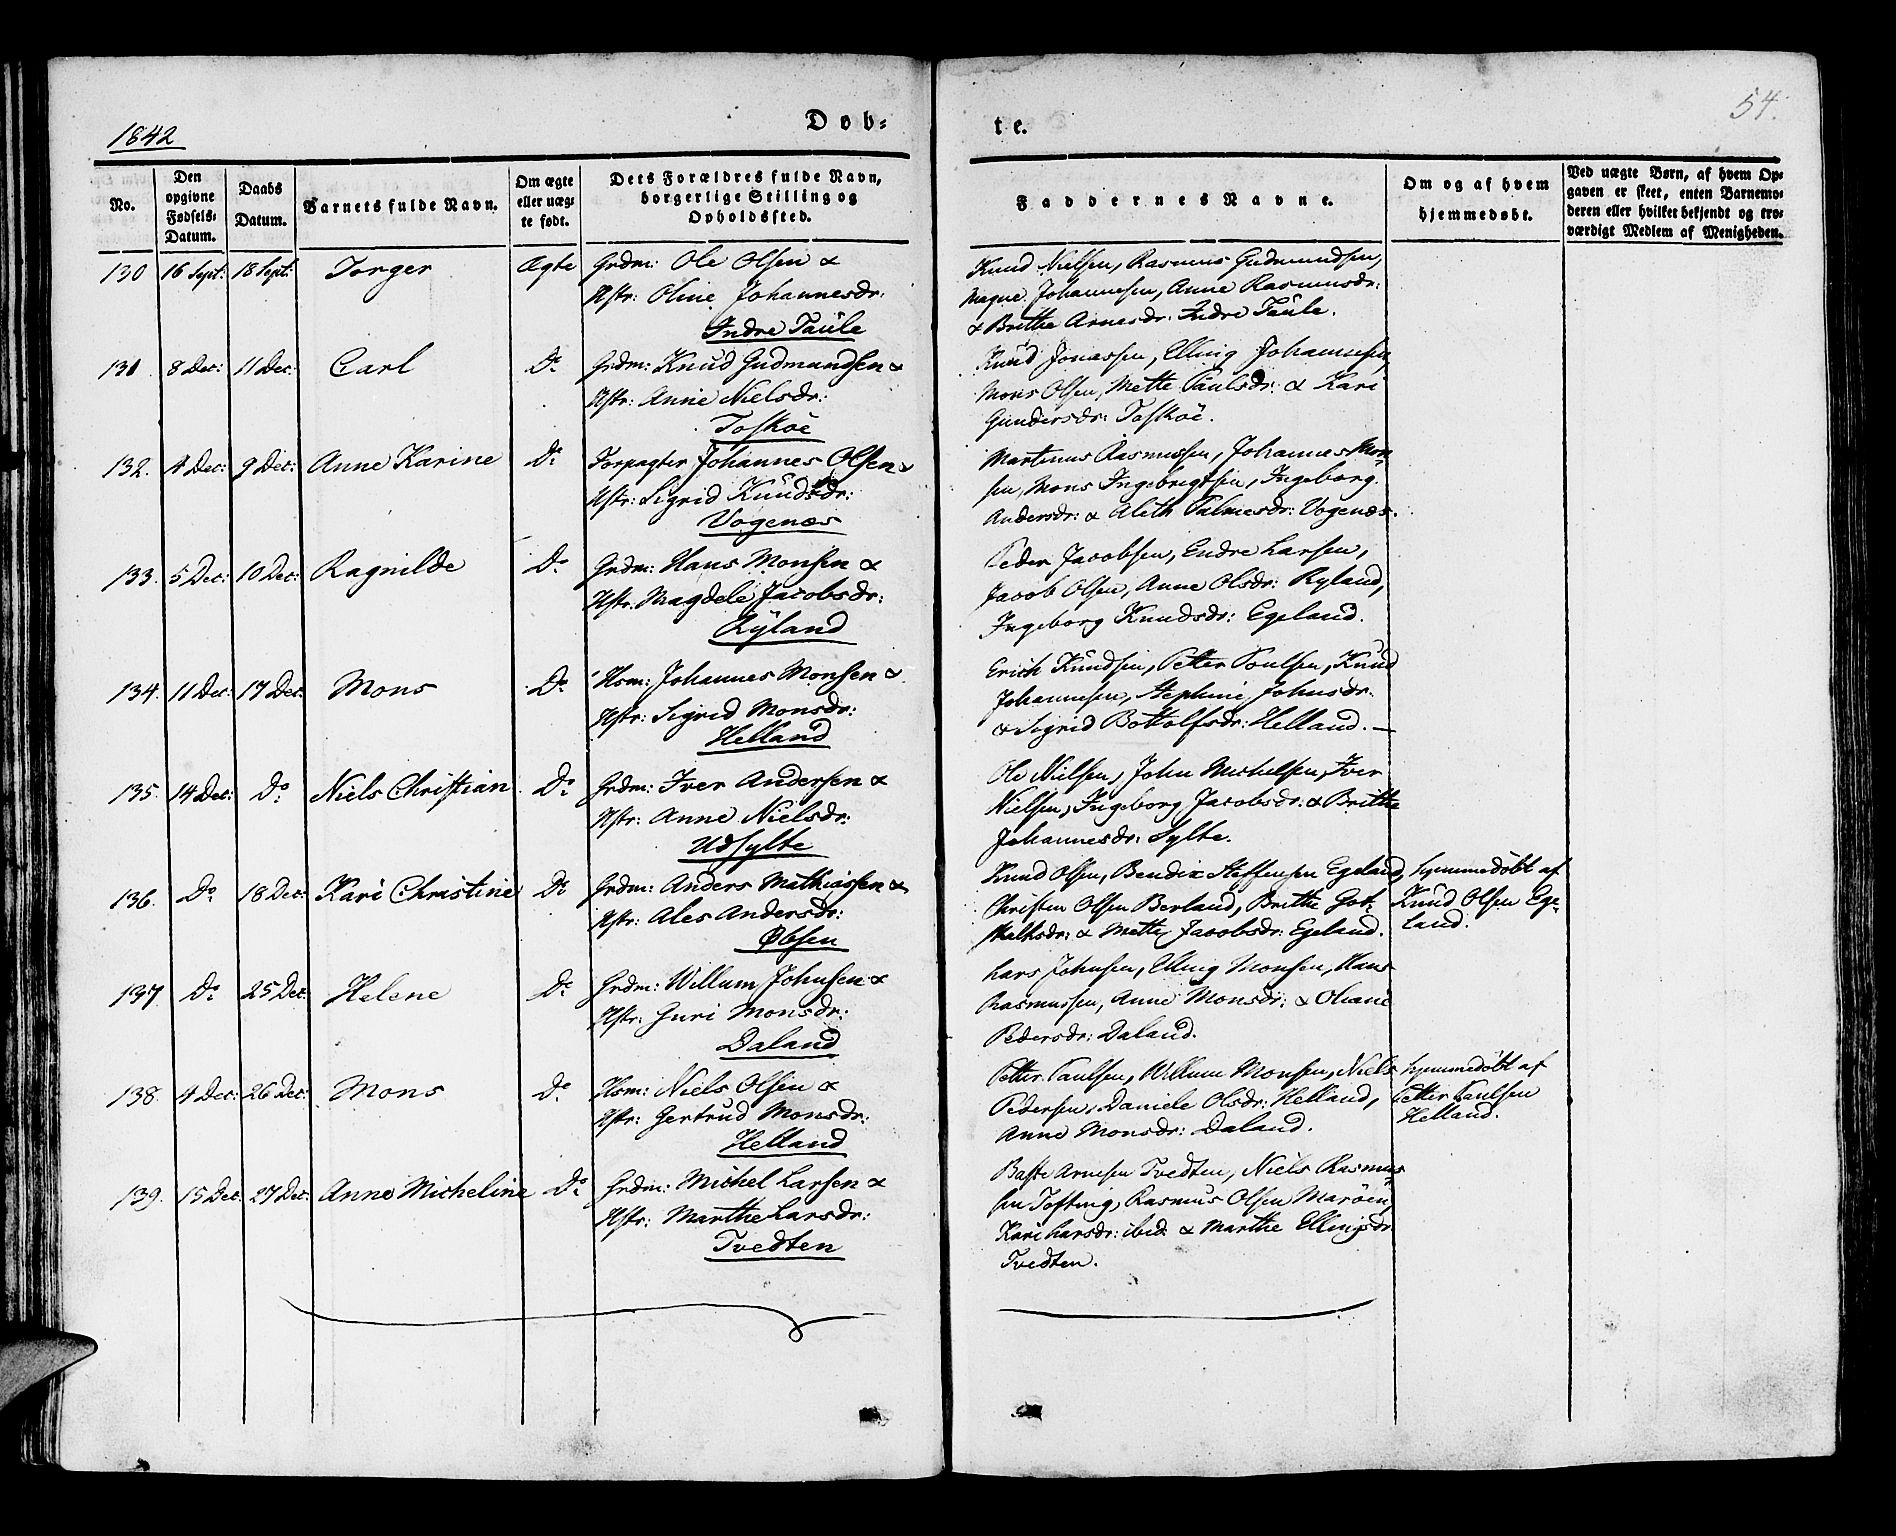 1842
Døb-
te.
54.
No.
Den opgivne Fødsels-Datum.
Daabs Datum.
Barnets fulde Navn.
Om ægte eller uæg-te født.
Dets Forældres fulde Navn, borgerlige Stilling og Opholdssted.
Faddernes Navne.
Om og af hvem hjemmedøbt.
Ved uægte Børn, af hvem Op-
gaven er skeet, enten Barnemo-
deren eller hvilket bekjendt og tro-
værdigt Medlem af Menigheden.
130 16 Sept: 18 Sept: Torger Ægte Grdm: Ole Olsen &
Hstr: Oline Johannesdr:
Indre Taule
Knud Nielsen, Rasmus Gudmundsen,
Magne Johannesen, Anne Rasmusdr:
& Brithe Arnesdr: Indre Taule.
131 8 Dec: 11 Dec: Carl Do Grdm: Knud Gudmundsen &
Hstr: Anne Nielsdr:
Toskøe
Knud Jonassen, Elling Johannesen,
Mons Olsen, Mette Paulsdr: & Kari
Gundersdr: Toskøe.
132. 4 Dec: 9 Dec: Anne Karine Do Forpagter Johannes Olsen &
Hstr: Sigrid Knudsdr:
Vogenæs
Martinus Rasmussen, Johannes Mon-
sen, Mons Ingebrigtsen, Ingeborg
Andersdr: & Aleth Palmesdr: Vogenæs.
133. 5 Dec: 10 Dec: Ragnilde Do Grdm: Hans Monsen &
Hstr. Magdele Jacobsdr:
Ryland
Peder Jacobsen, Endre Larsen,
Jacob Olsen, Anne Olsdr: Ryland,
Ingeborg Knudsdr: Egeland.
134. 11 Dec: 17 Dec: Mons Do Hsm: Johannes Monsen &
Hstr: Sigrid Monsdr:
Helland
Erich Knudsen, Petter Poulsen, Knud
Johannesen, Stephine Johnsdr.
& Sigrid Bottolfsdr: Helland. —
135. 14 Dec: Do Niels Christian Do Grdm: Iver Andersen &
Hstr: Anne Nielsdr:
Udsylte
Ole Nielsen, John Michelsen, Iver
Nielsen, Ingeborg Jacobsdr: & Brithe
Johannesdr: Sylte.
136. Do 18 Dec: Kari Christine Do Grdm: Anders Mathiassen &
Hstr: Ales Andersdr:
Øbsen
Knud Olsen, Bendix Steffensen Egeland,
Christen Olsen Berland, Brithe Got-
skalksdr: & Mette Jacobsdr: Egeland.
hjemmedøbt af
Knud Olsen Ege-
land.
137. Do 25 Dec: Helene Do Grdm: Willum Johnsen &
Hstr: Guri Monsdr:
Daland
Lars Johnsen, Elling Monsen, Hans
Rasmussen, Anne Monsdr: &
Pedersdr: Daland.
138. 4 Dec: 26 Dec: Mons Do Hsm: Niels Olsen &
Hstr: Gertrud Monsdr:
Helland
Petter Paulsen, Willum Monsen, Niels
Pedersen, Daniele Olsdr: Helland,
Anne Monsdr: Daland.
hjemmedøbt af
Petter Paulsen
Helland.
139. 15 Dec: 27 Dec: Anne Micheline Do Grdm: Michel Larsen &
Hstr: Marthe Larsdr:
Tvedten
Baste Arnesen Tvedten, Niels Rasmus-
sen Tofting, Rasmus Olsen Marøen,
Kari Larsdr: ibid & Marthe Ellingsdr
Tvedten.